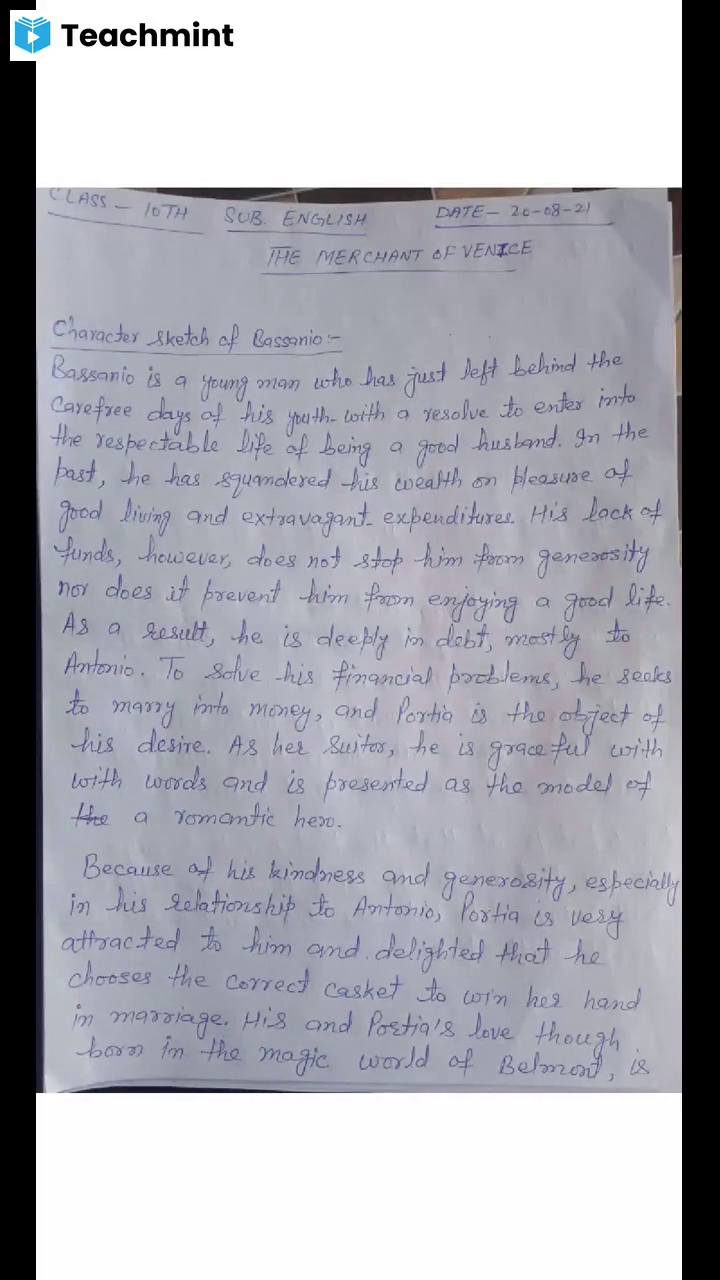 Teachmint
CLASS - 10TH SUB. ENGLISH DATE - 20-08-21
THE MERCHANT OF VENICE
Character sketch of Bassanio:-
Bassanio is a young man who has just left behind the
carefree days of his youth with a resolve to enter into
the respectable life of being a good husband. In the
past, he has squandered his wealth on pleasure of
good living and extravagant expenditures. His lack of
funds, however, does not stop him from generosity
nor does it prevent him from enjoying a good life.
As a result, he is deeply in debt, mostly to
Antonio. To solve his financial problems, he seeks
to marry into money, and Portia is the object of
his desire. As her suitor, he is graceful with
with words and is presented as the model of
the a romantic hero.
Because of his kindness and generosity, especially
in his relationship to Antonio, Portia is very
attracted to him and delighted that he
chooses the correct casket to win her hand
in marriage. His and Portia's love though
born in the magic world of Belmont, is